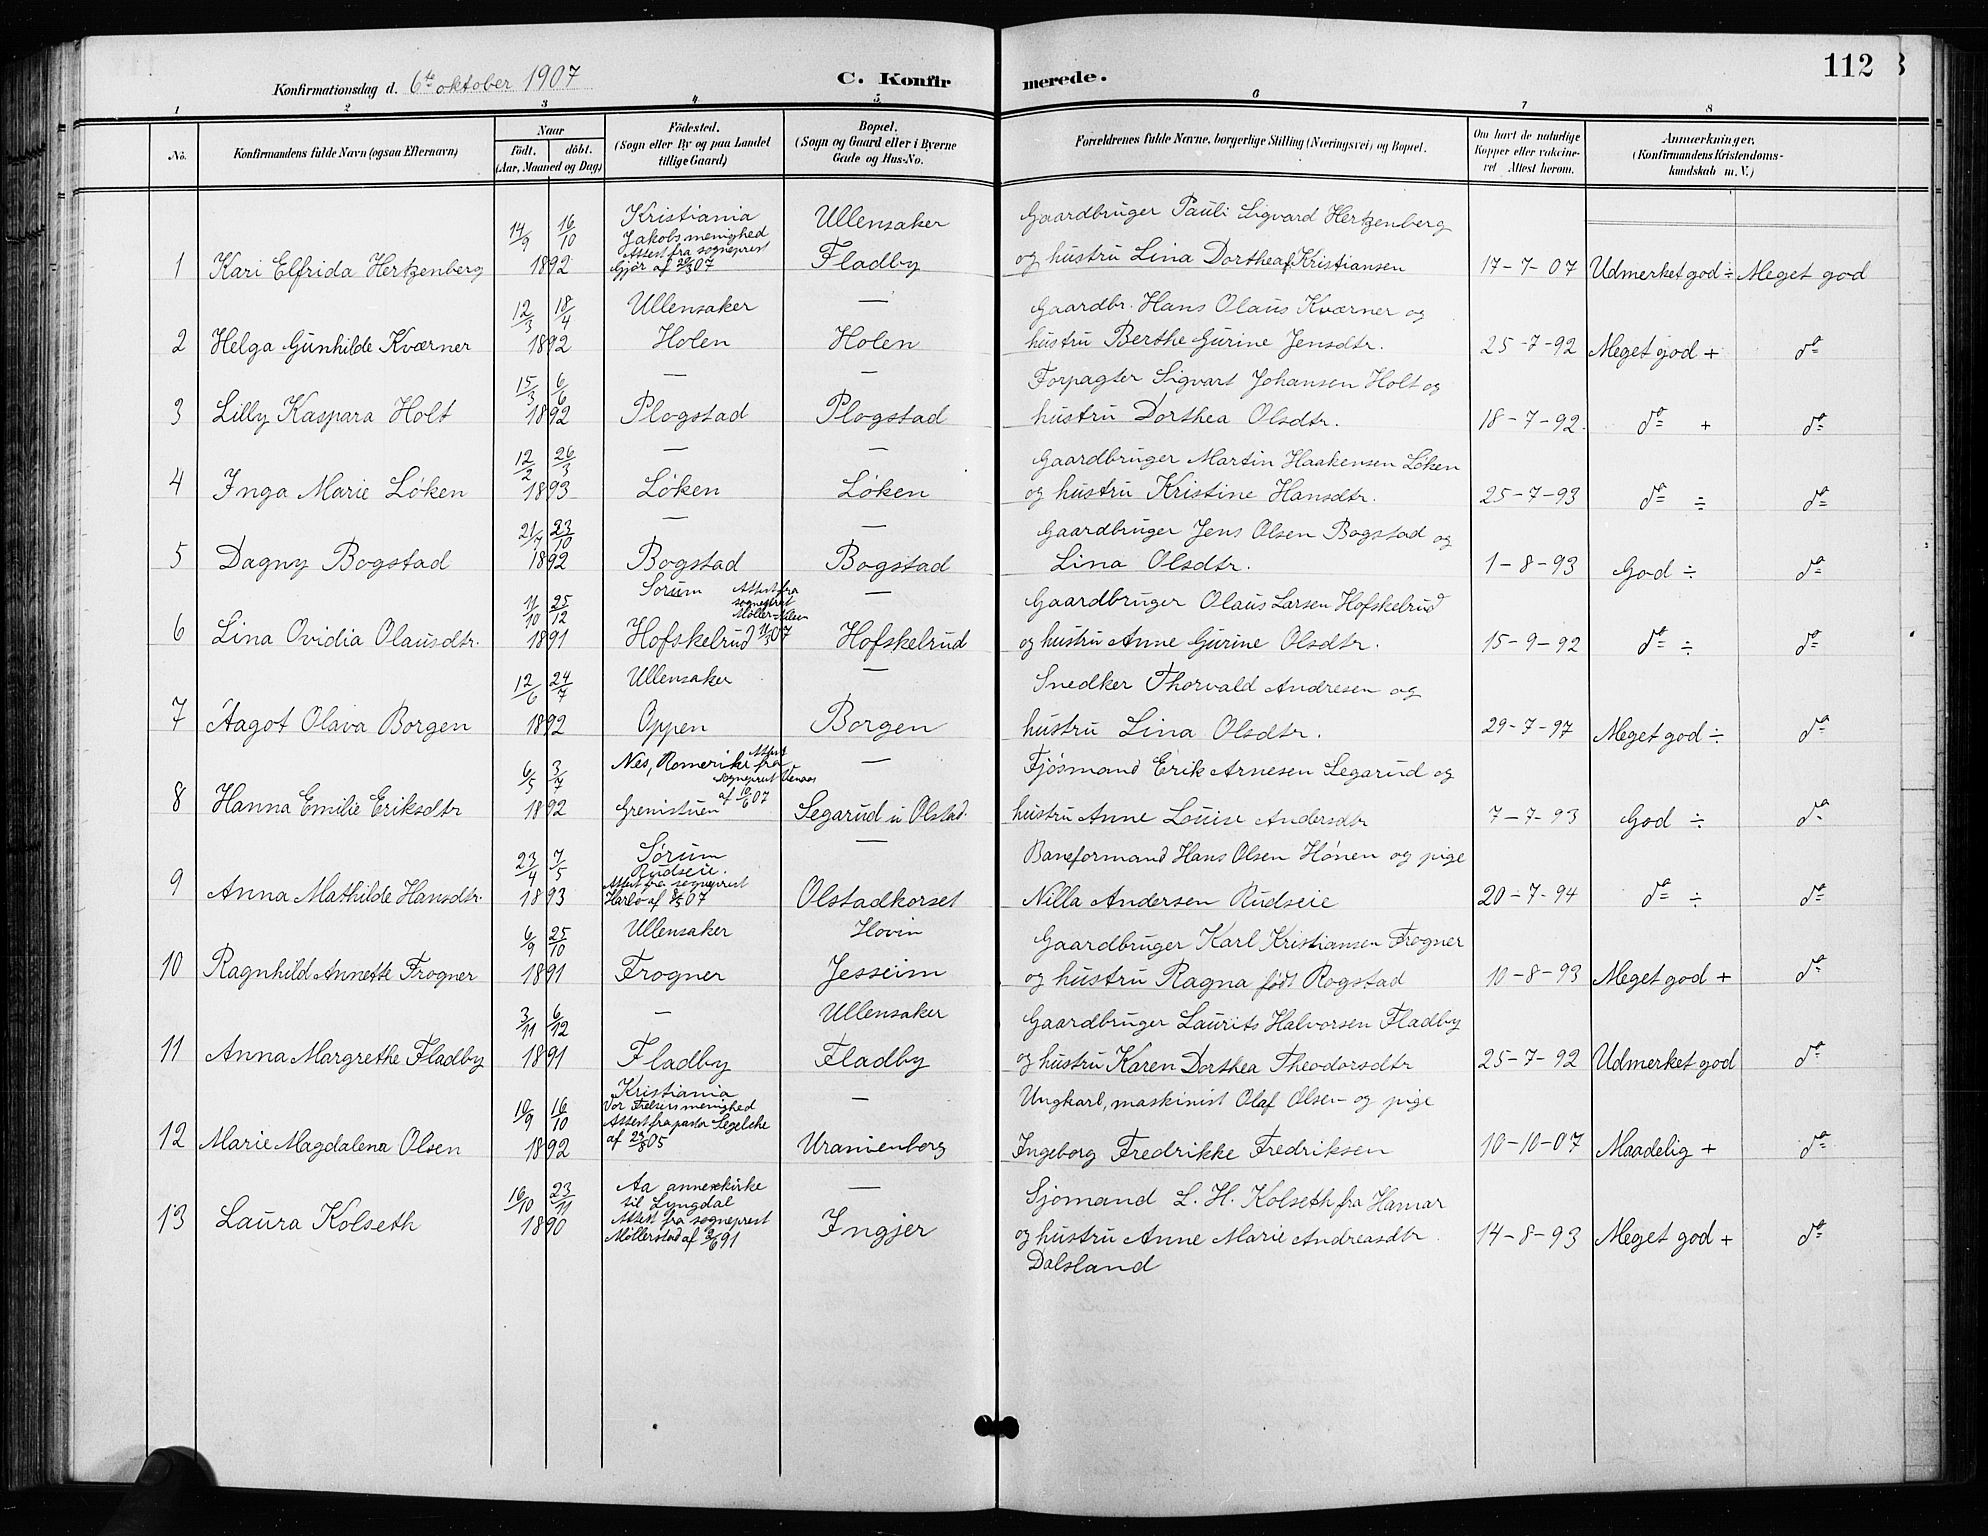 Konfirmationsdag d. 6te oktober 1907
C. Konfirmerede.
112
1 2 3 4 5. 6 7 8
No.
Konfirmandens fulde Navn (ogsaa Efternavn)
Naar
født. døbt.
(Aar, Maaned og Dag)
Fødested.
(Sogn eller By og paa Landet
tillige Gaard)
Bopæl.
(Sogn og Gaard eller i Byerne
Gade og Hus-No.
Forældrenes fulde Navne, borgerlige Stilling (Næringsvei) og Bopæl.
Om havt de naturlige
Kopper eller vakcine-
ret Attest herom.
Anmerkninger,
(Konfirmandens Kristendoms-
kundskab m. V.)
1 Kari Elfrida Hertzenberg
14/9 16/10
1892
Kristiania
Jakobs menighed
Attest fra sogneprest
Gjør af 20/3 07
Ullensaker
Fladby
Gaardbruger Pauli Sigvard Hertzenberg
og hustru Lina Dorthea f. Kristiansen
17-7-07
Udmerket god ÷ Meget god
2 Helga Gunhilde Kværner
12/3 18/4
1892
Ullensaker
Holen
—
Holen
Gaardbr. Hans Olaus Kværner og
hustru Berthe Gurine Jensdtr.
25-7-92
Meget god + do
3 Lilly Kaspara Holt
15/3 6/6
1892
—
Plogstad
—
Plogstad
Forpagter Sigvart Johansen Holt og
hustru Dorthea Olsdtr.
18-7-92.
do + do
4 Inga Marie Løken
12/2 26/3
1893
—
Løken
—
Løken
Gaardbruger Martin Haakensen Løken
og hustru Kristine Hansdtr.
25-7-93
do ÷ do
5 Dagny Bogstad
21/7 23/10
1892
—
Bogstad
—
Bogstad
Gaardbruger Jens Olsen Bogstad og
Lina Olsdtr.
1-8-93
God ÷ do
6 Lina Ovidia Olausdtr.
11/10 25/12
1891
Sørum Attest fra
sogneprest
Hofskelrud 11/3 07
—
Hofskelrud
Gaardbruger Olaus Larsen Hofskelrud
og hustru Anne Gurine Olsdtr.
15-9-92
do ÷ do
7 Aagot Olava Borgen
12/6 24/7
1892
Ullensaker
Oppen
—
Borgen
Snedker Thorvald Andresen og
hustru Lina Olsdtr.
29-7-97
Meget god ÷ do
8 Hanna Emilie Eriksdtr
6/5 3/7
1892
Nes, Romerike Attest fra
sogneprest
af 10/6 07
Grenistuen
—
Segarud u Olstad.
Fjøsmand Erik Arnesen Segarud og
hustru Anne Louise Andersdtr
7-7-93
God ÷ do
9 Anna Mathilde Hansdtr.
23/4 7/5
1893
Sørum
Rudseie.
Attest fra sogneprest
Harbo af 8/5 07
—
Olstadkorset
Baneformand Hans Olsen Hønen og pige
Nilla Andersen Rudseie
20-7-94
do ÷ do
10 Ragnhild Annette Frogner
6/9 25/10
1891
Ullensaker
Frogner
Hovin
Jesseim
Gaardbruger Karl Kristiansen Frogner
og hustru Ragna født Rogstad
10-8-93
Meget god + do
11 Anna Margrethe Fladby
3/11 6/12
1891
—
Fladby
Ullensaker
Fladby
Gaardbruger Laurits Halvorsen Fladby
og hustru Karen Dorthea Theodorsdtr
25-7-92
Udmerket god do
12 Marie Magdalena Olsen
10/9 16/10
1892
Kristiania
Vor Frelsers menighed
Attest fra pastor Segelcke
af 23/8 05
—
Uranienborg
Ungkarl, maskinist Olaf Olsen og pige
Ingeborg Fredrikke Fredriksen
10-10-07
Maadelig + do
13 Laura Kolseth
16/10 23/11
1890
Aa annexkirke
til Lyngdal
Attest fra sogneprest
Møllerstad af 9/6 91
—
Ingjer
Sjømand L. H. Kolseth fra Hamar
og hustru Anne Marie Andreasdtr.
Dalsland
14-8-93
Meget god + do